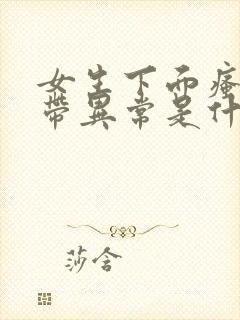 女生下面瘙
带異常是什
莎含